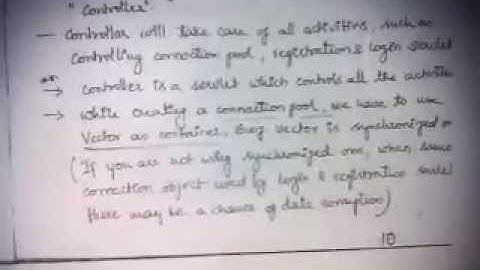 " Controller".
— Controller will take care of all activities, such as
controlling connection pool, registration & login servlet
→ controller is a servlet which controls all the activities
→ while creating a connection pool, we have to use
Vector as container, Coz vector is synchronized
(If you are not using synchronized one, when same
connection object used by login & registration servlet
there may be a chance of data corruption)
10